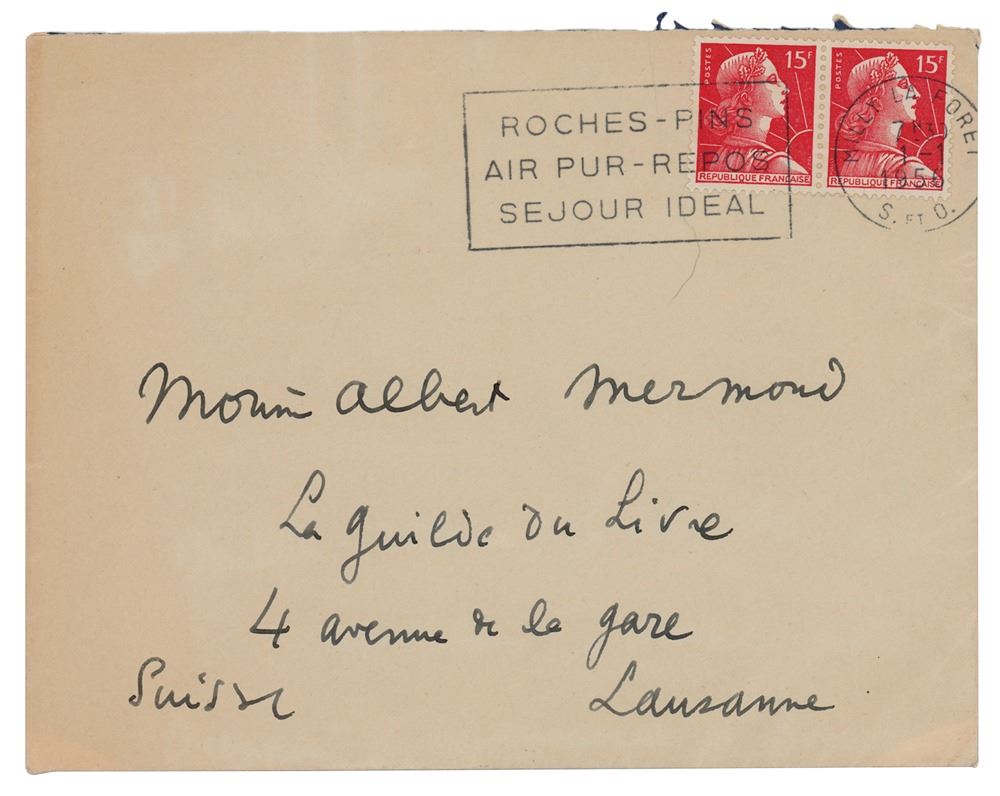 POSTES 15F POSTES 15F
REPUBLIQUE FRANÇAISE REPUBLIQUE FRANÇAISE
ROCHES-PINS
AIR PUR-REPOS
SEJOUR IDEAL
MILLY LA FORET
1-1
1956
S. ET O.
Albert Mermoud
La Guilde du Livre
4 avenue de la gare
Suisse Lausanne